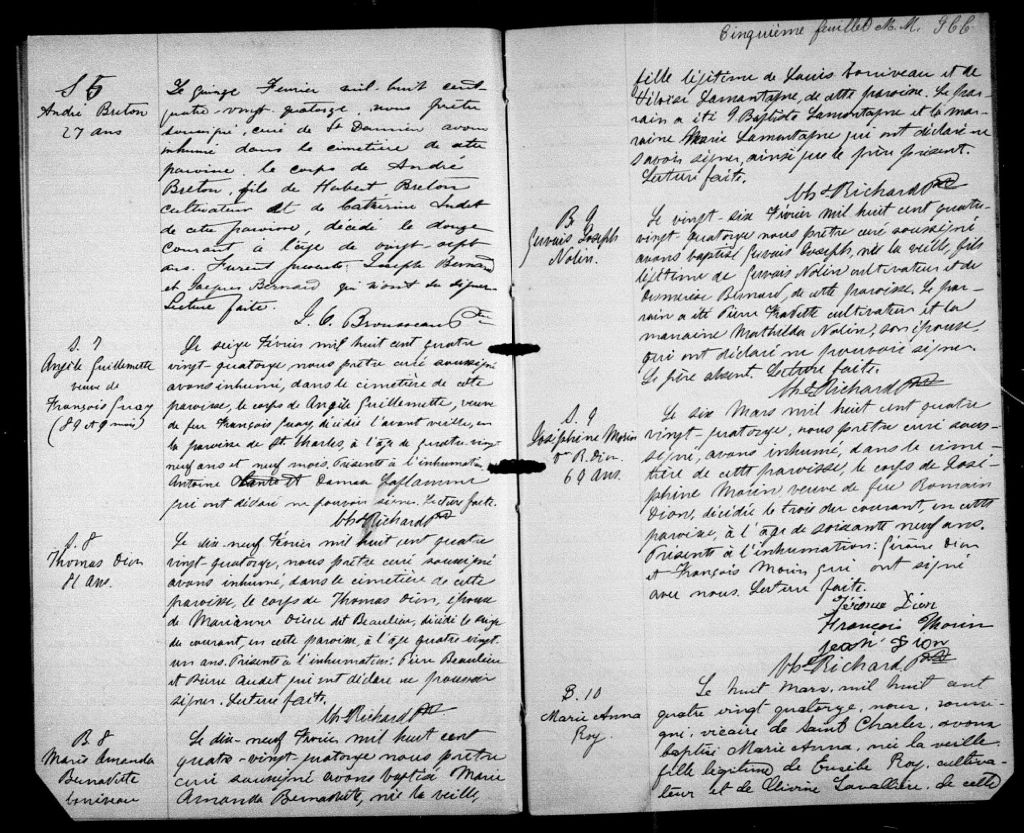 S 6
André Breton
27 ans
Le quinze Février mil huit cent
quatre-vingt-quatorze, nous prêtre
soussigné, curé de St Damien avons
inhumé dans le cimetière de cette
paroisse, le corps de André
Breton, fils de Hubert Breton
cultivateur et de Catherine
de cette paroisse, décédé le douze
courant à l'âge de vingt-sept
ans. Furent présents: Joseph Bernard
et Jacques Bernard qui n'ont su signer
Lecture faite.
J. O. Brousseau Ptre
S. 7
Angèle Guillemette
veuve de
François Guay
(89 et 9 mois)
Le seize Février mil huit cent quatre
vingt-quatorze, nous prêtre curé soussigné
avons inhumé, dans le cimetière de cette
paroisse, le corps de Angèle Guillemette, veuve
de feu François Guay, décédée l'avant veille, en
la paroisse de St Charles, à l'âge de quatre vingt
neuf ans et neuf mois. Présents à l'inhumation
Antoine et Damase Laflamme
qui ont déclaré ne pouvoir signer. Lecture faite.
Chs Richard Ptre
S. 8
Thomas Dion
81 ans.
Le dix-neuf Février mil huit cent quatre
vingt-quatorze, nous prêtre curé soussigné
avons inhumé, dans le cimetière de cette
paroisse, le corps de Thomas Dion, époux
de Marianne dit Beaulieu, décédé le seize
du courant, en cette paroisse, à l'âge quatre vingt
un ans. Présents à l'inhumation: Pierre Beaulieu
et Pierre Audet qui ont déclaré ne pouvoir
signer. Lecture faite.
Chs Richard Ptre
B 8
Marie Amanda
Bernadette
Le dix-neuf Février mil huit cent
quatre-vingt-quatorze nous prêtre
curé soussigné avons baptisé Marie
Amanda Bernadette, née la veille,
Cinquième feuillet M. M.
fille légitime de Louis et de
Héloïse Lamontagne, de cette paroisse. Le par-
rain a été J. Baptiste Lamontagne et la mar-
raine Marie Lamontagne qui ont déclaré ne
savoir signer, ainsi que le père présent.
Lecture faite.
Chs Richard Ptre
B 9
Gervais Joseph
Nolin.
Le vingt-six Février mil huit cent quatre-
vingt-quatorze nous prêtre curé soussigné
avons baptisé Gervais Joseph, né la veille, fils
légitime de Gervais Nolin cultivateur et de
Bernard, de cette paroisse. Le par-
rain a été Pierre cultivateur et la
marraine Mathilda Nolin, son épouse,
qui ont déclaré ne pouvoir signer.
Le père absent. Lecture faite.
Chs Richard Ptre
S. 9
Joséphine Morin
Vve R. Dion.
69 ans.
Le six Mars mil huit cent quatre
vingt-quatorze, nous prêtre curé sous-
signé, avons inhumé, dans le cime-
tière de cette paroisse, le corps de José-
phine Morin veuve de feu Romain
Dion, décédée le trois du courant, en cette
paroisse, à l'âge de soixante neuf ans.
Présents à l'inhumation: Jérôme Dion
et François Morin qui ont signé
avec nous. Lecture faite.
Jérôme Dion
François Morin
Dion
Chs Richard Ptre
B. 10
Marie Anna
Roy.
Le huit Mars, mil huit cent
quatre vingt quatorze, nous, soussi-
gné, vicaire de Saint Charles, avons
baptisé Marie Anna, née la veille
fille légitime de Eusèbe Roy, cultiva-
teur et de Lavallière, de cette